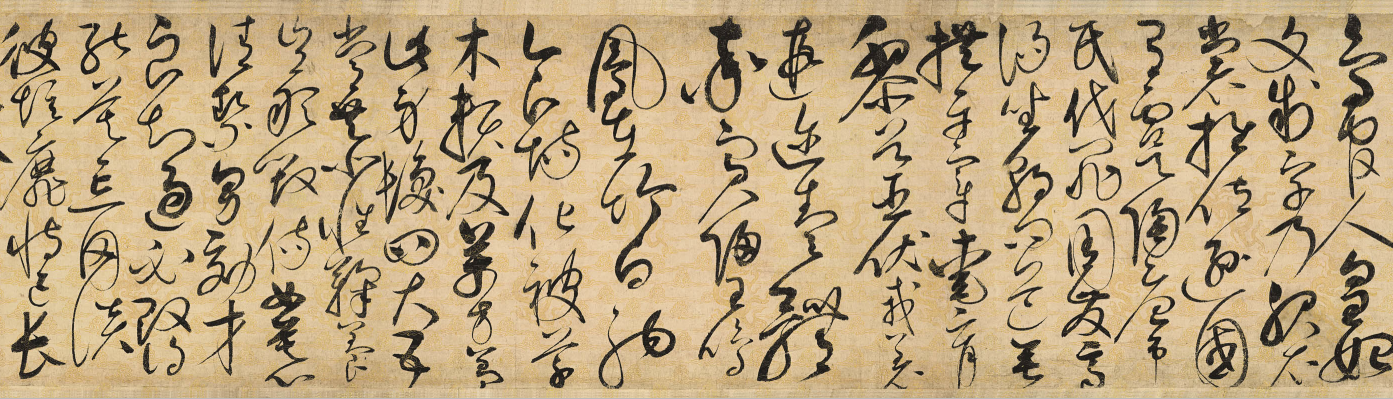 鳥官人皇始
文制字乃服衣
裳推位遜國
有虞陶唐弔
民伐罪周發商
湯坐朝問道垂
拱平章愛育
黎首臣伏戎羌
遐邇壹體
率賓歸王鳴
鳳在竹白駒
食場化被草
木賴及萬方蓋
此身髮四大五
常恭惟鞠養
豈敢毀傷女慕
清潔男效才
良知過必改得
能莫忘罔談
彼短靡恃己長